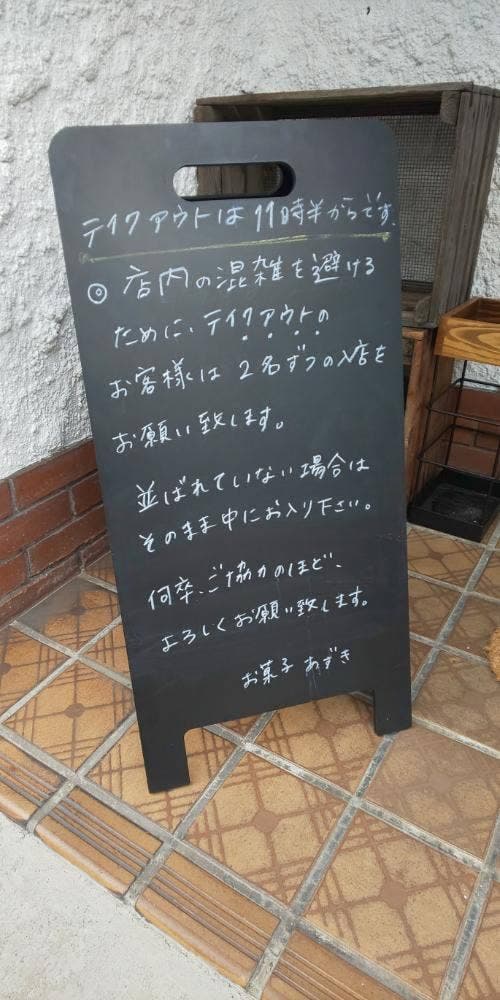 テイクアウトは11時半からです。
◎ 店内の混雑を避ける
ために、テイクアウトの
お客様は2名ずつの入店を
お願い致します。
並ばれていない場合は
そのまま中にお入り下さい。
何卒、ご協力のほど、
よろしくお願い致します。
お菓子 あずき